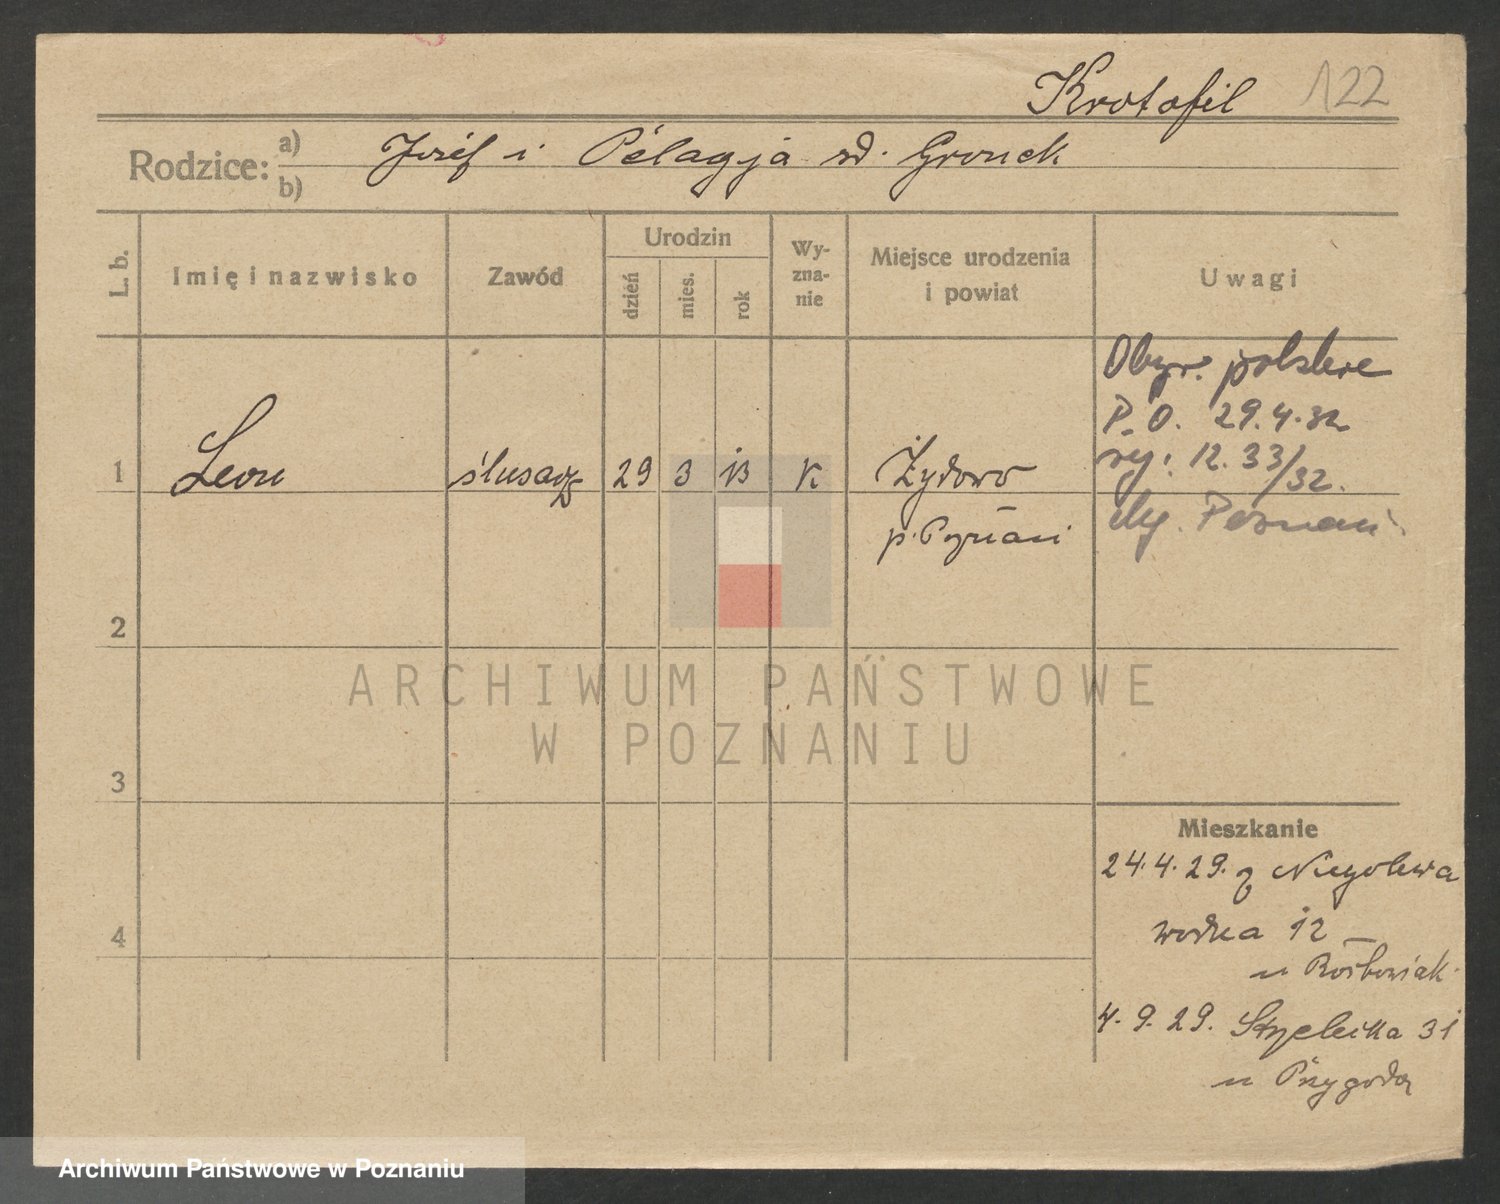 Krotofil 122
Rodzice: a) Józef i Pelagja rd. Gronek
b)
L. b.
Imię i nazwisko
Zawód
Urodzin
dzień
mies.
rok
Wy-
zna-
nie
Miejsce urodzenia
i powiat
Uwagi
1 Leon ślusarz 29 3 13 K Żydowo
p. Poznań
Obyw. polskie
P.O. 29.4.32
rej: 12.33/32.
Mg. Poznań
2
3
4
Mieszkanie
24.4.29. z Niegolewa
wodna 12
u
4.9.29. Strzelecka 31
u Przygoda
ARCHIWUM PAŃSTWOWE
W POZNANIU
Archiwum Państwowe w Poznaniu